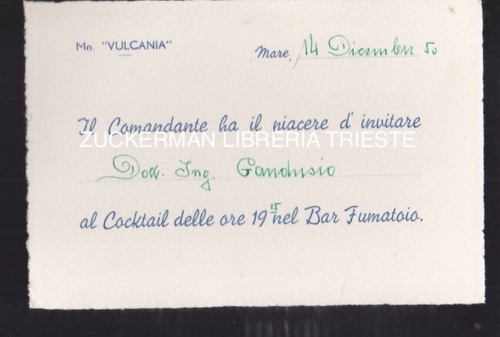 Mn. "VULCANIA"
Mare, 14 Dicembre 50
Il Comandante ha il piacere d' invitare
ZUCKERMAN LIBRERIA TRIESTE
Dott. Ing. Gandusio
al Cocktail delle ore 19 15 nel Bar Fumatoio.